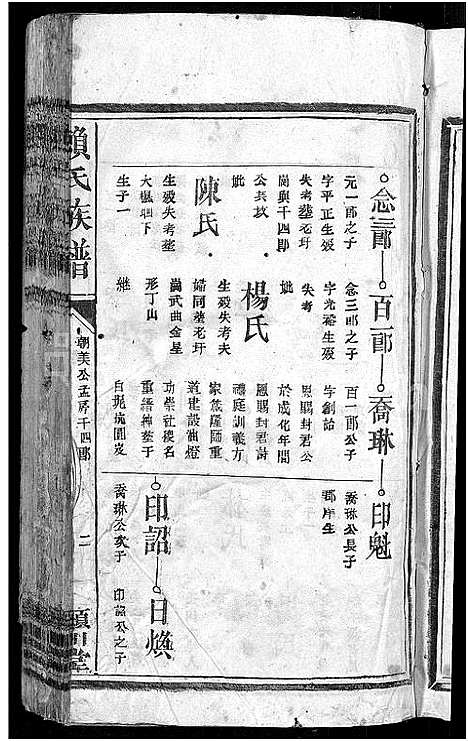 念三郎—百一郎—喬琳—印魁
元一郎之子
字平正生歿
失考葬老圩
崗與千四郎
公共墳
妣
陳氏
生歿失考葬
大樹垇下
生子一
念三郎之子
字光裕生歿
失考
妣
楊氏
生歿失考夫
婦同葬老圩
崗武曲金星
形丁山
繼
百一郎公子
字創詒
恩賜封君公
於成化年間
恩賜封君詩
禮庭訓義方
家族隆師重
道建設油燈
功崇社稷名
重縉紳葬于
喬琳公長子
郡庠生
印詔—日煥
喬琳公次子
印詔公之子
賴氏族譜
朝美公孟房千四郎
二